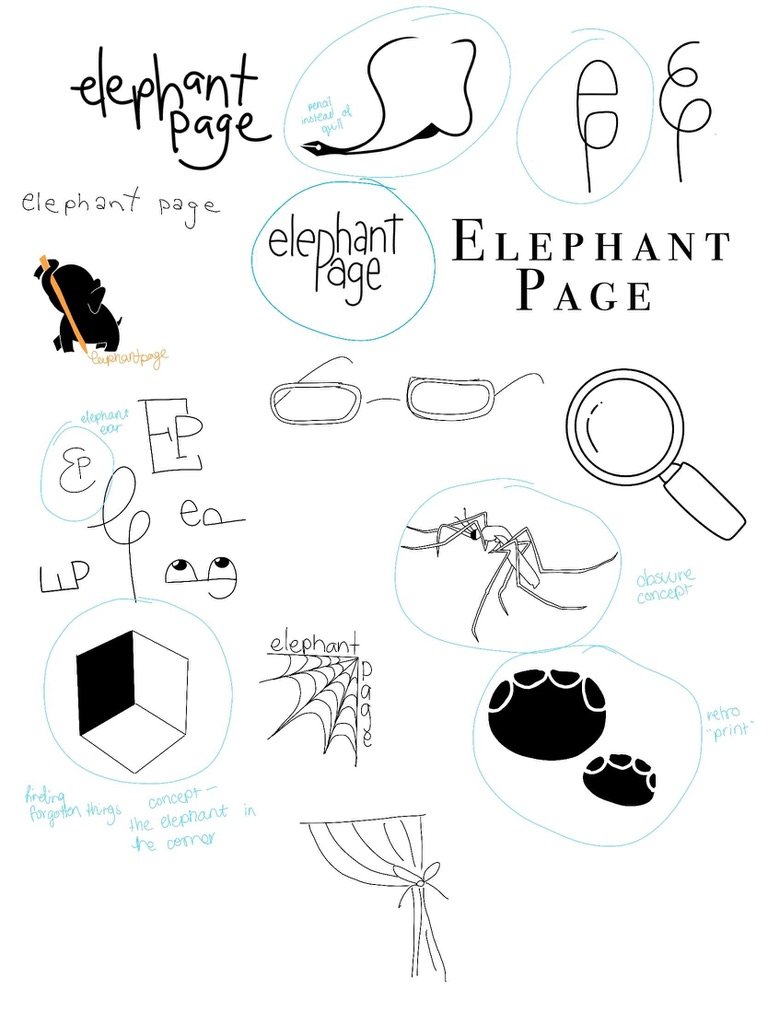 elephant
page
pencil
instead of
quill
ep
elephant page
elephant
page
ELEPHANT
PAGE
elephantpage
elephant
ear
EP
Ep
ep
EP
obscure
concept
elephant
page
retro
"print"
finding
forgotten things
concept -
the elephant in
the corner